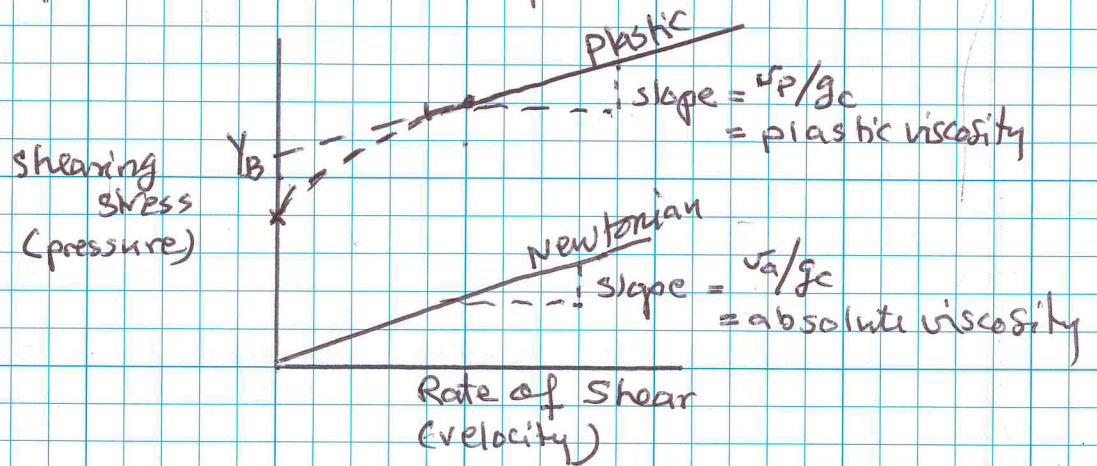 plastic
slope = √p/gc
= plastic viscosity
YB
shearing
stress
(pressure)
Newtonian
slope = √a/gc
= absolute viscosity
Rate of Shear
(velocity)